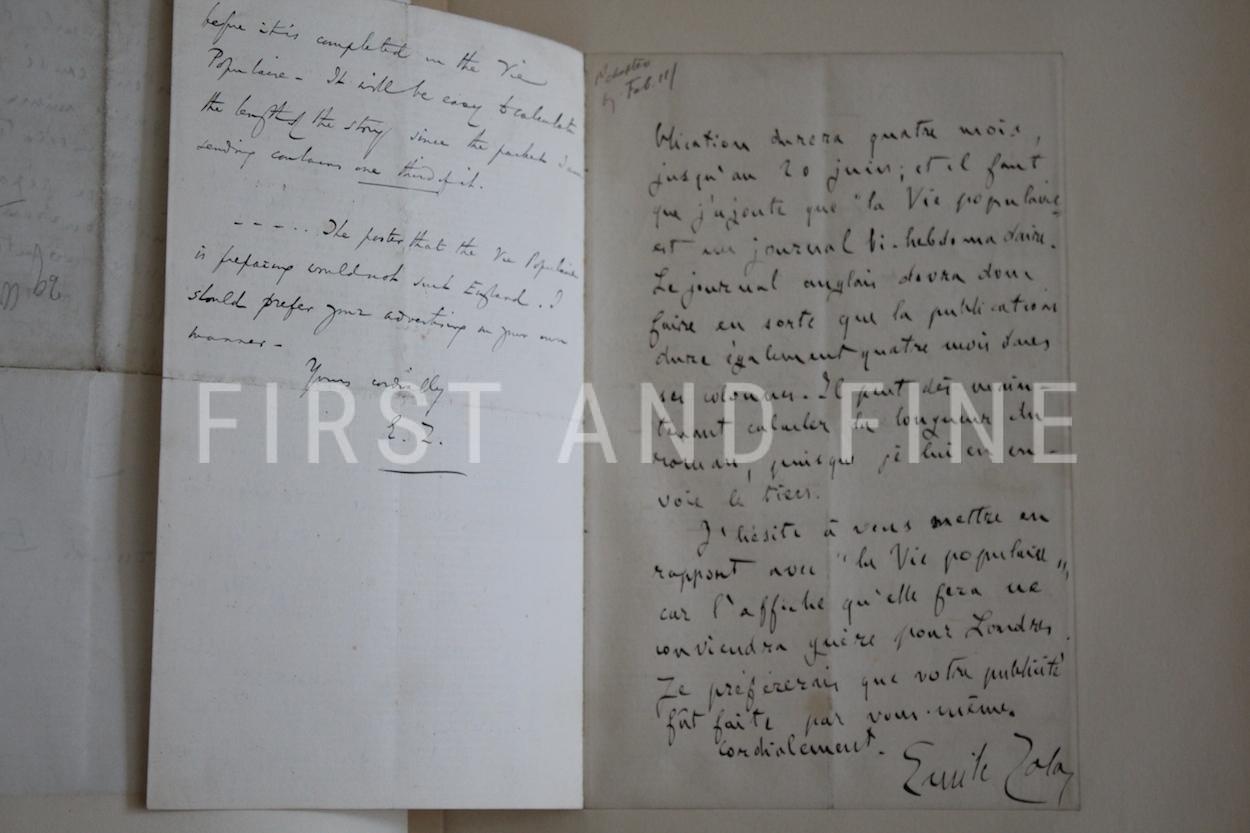 before it is completed in the Vie
Populaire – It will be easy to calculate
the length of the story since the packet I am
sending contains one third of it.
– – – . . The poster that the Vie Populaire
is preparing would not suit England. I
should prefer your advertising in your own
manner –
Yours cordially
E. Z.
by Feb. 11/
blication durera quatre mois,
jusqu'au 20 juin; et il faut
que j'ajoute que "la Vie populaire
est un journal bi-hebdomadaire.
Le journal anglais devra donc
faire en sorte que la publication
dure également quatre mois dans
ses colonnes. Il peut dès main-
tenant calculer la longueur du
roman, puisque je lui en en-
voie le tiers.
J'hésite à vous mettre en
rapport avec "la Vie populaire"
car l'affiche qu'elle fera ne
conviendra guère pour Londres.
Je préférerais que votre publicité
fût faite par vous-même.
Cordialement.
Emile Zola
FIRST AND FINE